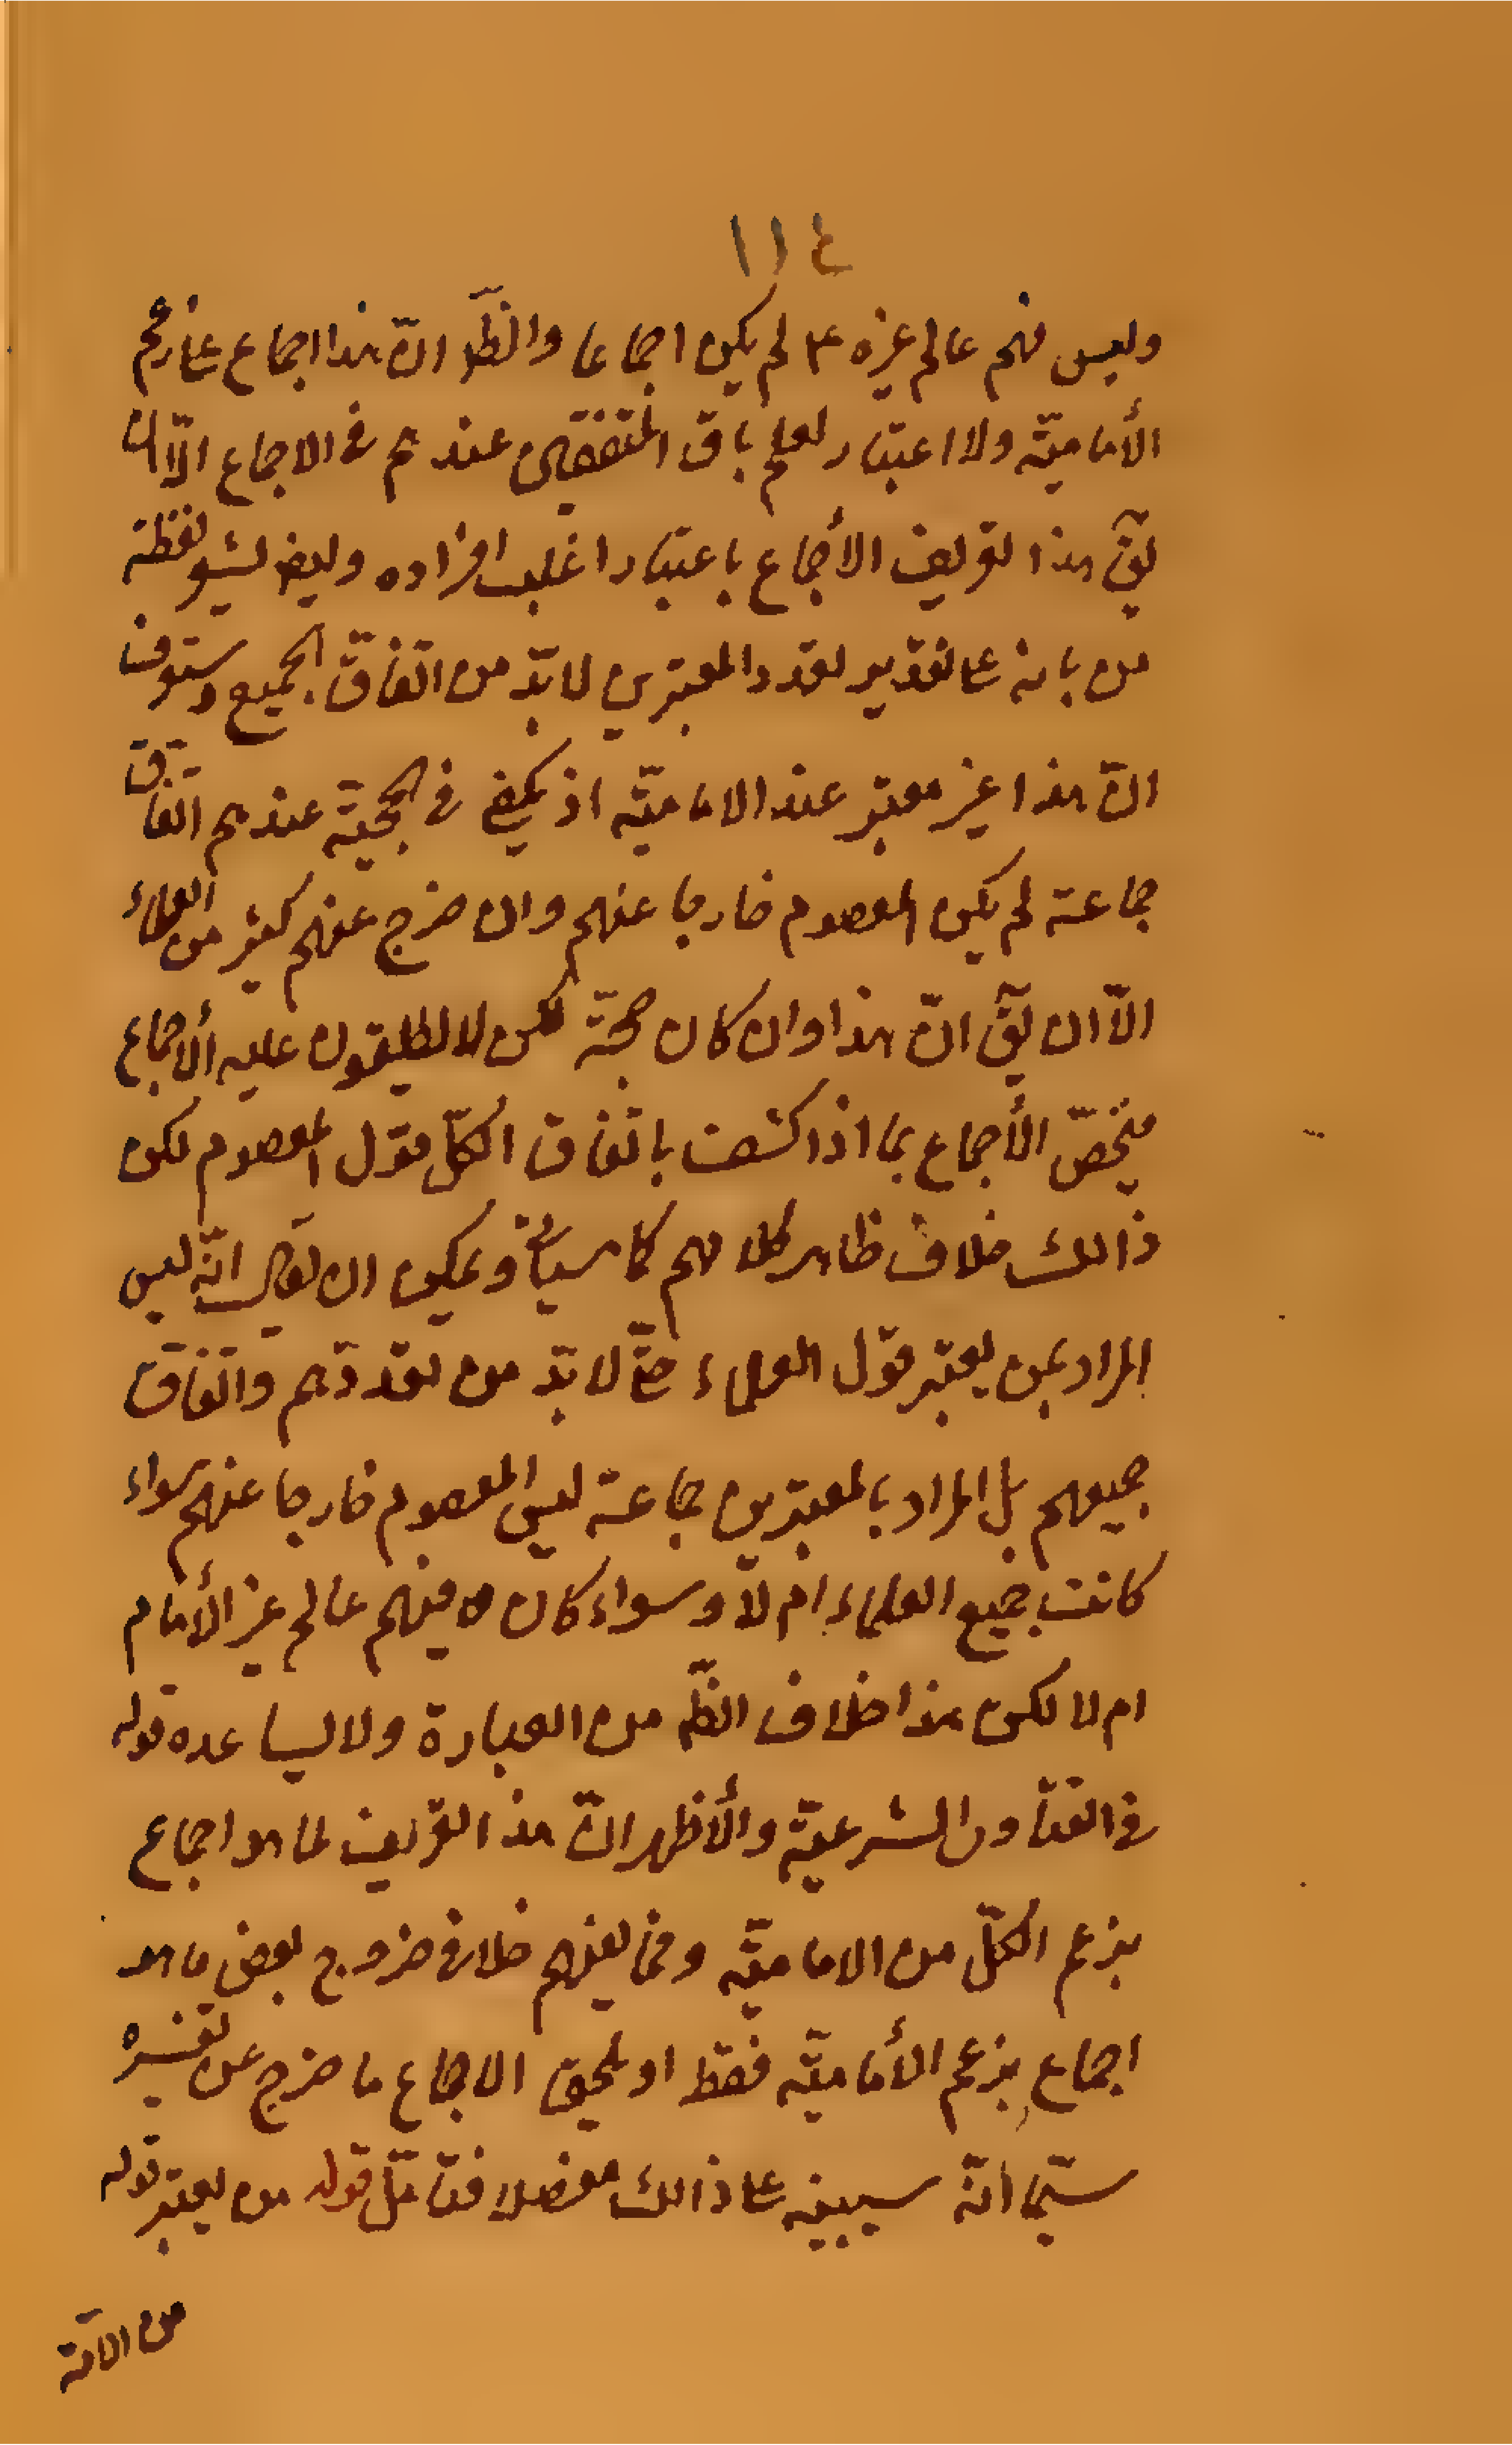 ١١٤
وليس فيهم عالم غيره ع لم يكن اجماعا والظّ انّ هذا اجماع على زعم
الأماميّة ولا اعتبار لعلم باقى المتفقين عندهم فى الاجماع الّا ان
يقٓ هذا تعريف الأجماع باعتبار اغلب افراده وايض يشعر لفظة
من بانه على تقدير تعدد المعتبرين لابدّ من اتّفاق الجميع وستعرف
انّ هذا غير معتبر عند الاماميّة اذ يكفى فى الحجيّة عندهم اتّفاق
جماعة لم يكن المعصوم خارجا عنهم وان خرج عنهم كثير من العلماء
الّا ان يقٓ انّ هذا وان كان حجّة لكن لا يطلقون عليه الأجماع
فيخصّ الأجماع بما اذا كشف باتّفاق الكلّ قول المعصوم لكن
ذالك خلاف ظاهر كلامهم كما سيأتى ويمكن ان يقال انّه ليس
المراد بمن يعتبر قول العلماء حتّى لابدّ من تعدّدهم واتّفاق
جميعهم بل المراد بالمعتبرين جماعة ليس المعصوم خارجا عنهم سواء
كانت جميع العلماء ام لا وسواء كان فيهم عالم غير الأمام
ام لا لكن هذا خلاف الظّ من العبارة ولا يساعده قوله
فى الفتاوى الشرعيّة والأظهر انّ هذا التعريف لما هو اجماع
بزعم الكلّ من الاماميّة ومخالفيهم فلا ضر خروج بعض ما هو
اجماع بزعم الأماميّة فقط او يلحق الاجماع ما خرج عن تفسيره
سيّما انّه سيبيّنه على ذالك مفصلا فتأمّل قوله من يعتبر قوله
من الامّة